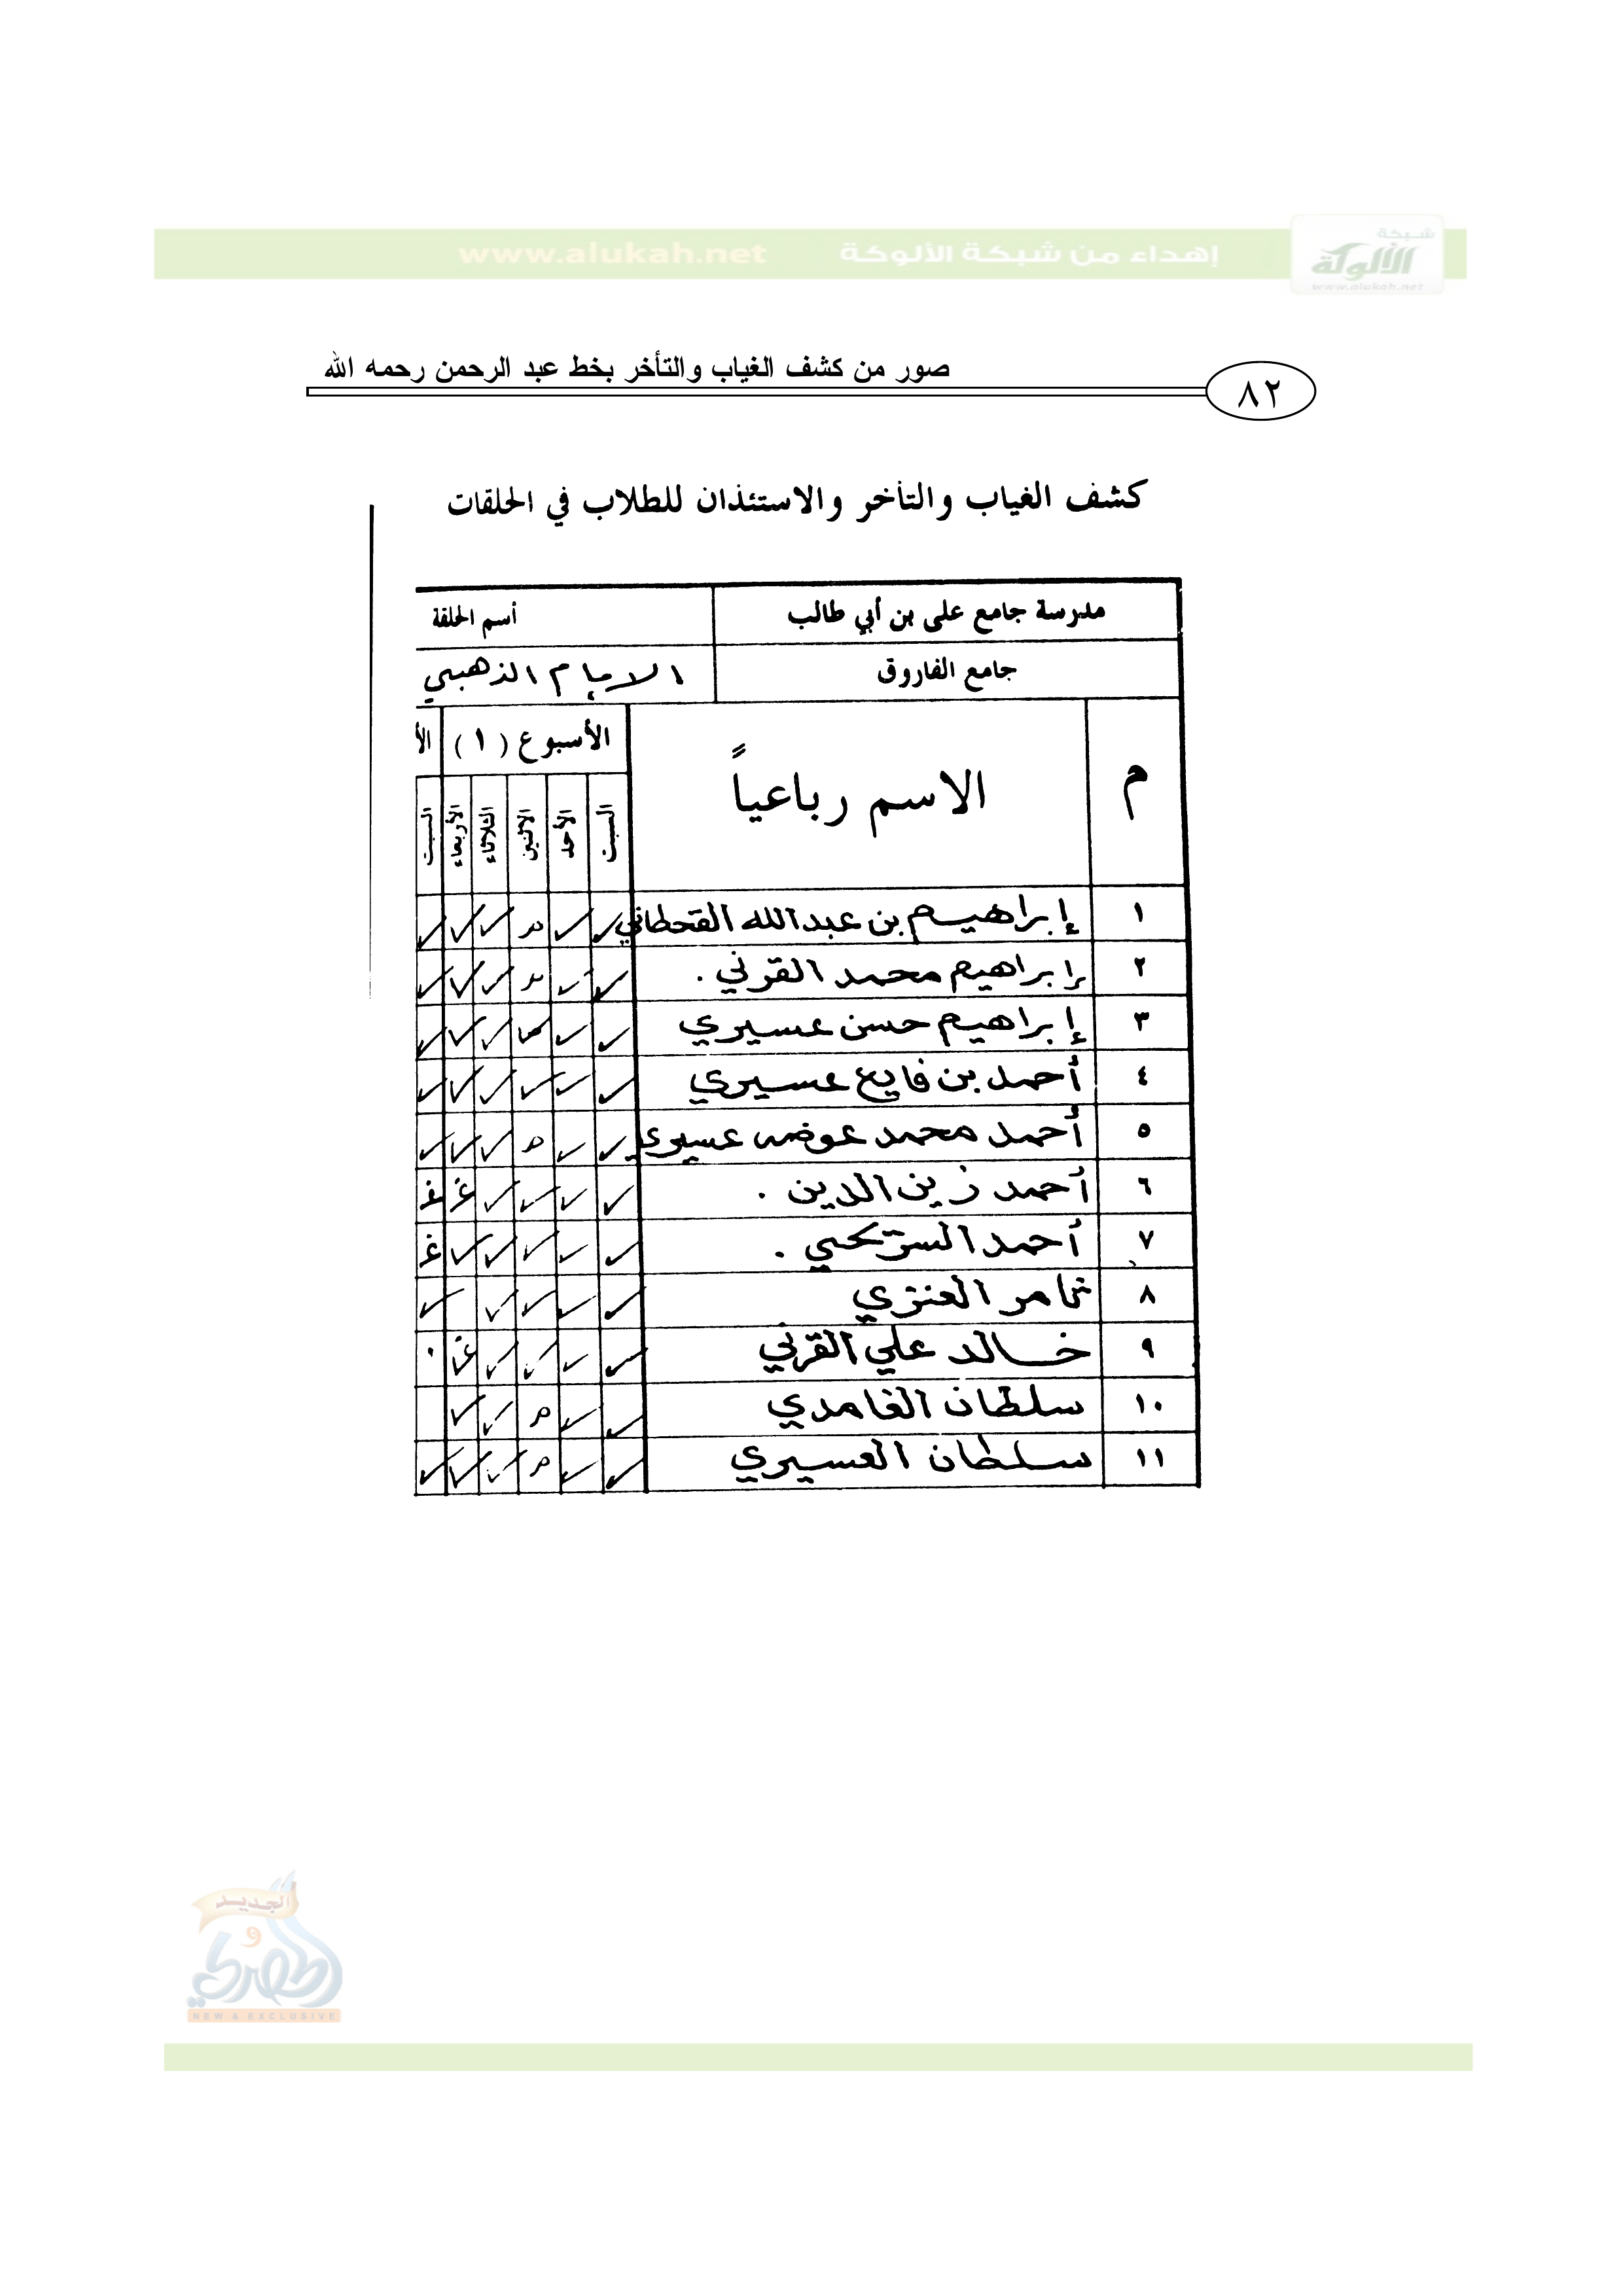 إهداء من شبكة الألوكة www.alukah.net
شبكة
الألوكة
www.alukah.net
٨٢ صور من كشف الغياب والتأخر بخط عبد الرحمن رحمه الله
كشف الغياب والتأخر والاستئذان للطلاب في الحلقات
مدرسة جامع على بن أبي طالب أسم الحلقة
جامع الفاروق الامام الذهبي
م الاسم رباعياً الأسبوع (١) الأ
السبت الأحد الاثنين الثلاثاء الأربعاء السبت
١ إبراهيم بن عبدالله القحطاني ✓ ✓ م ✓ ✓ ✓
٢ إبراهيم محمد القرني . ✓ ✓ م ✓ ✓ ✓
٣ إبراهيم حسن عسيري ✓ ✓ ✓ ✓ ✓ ✓
٤ أحمد بن فايع عسيري ✓ ✓ ✓ ✓ ✓ ✓
٥ أحمد محمد عوضه عسيري ✓ ✓ م ✓ ✓ ✓
٦ أحمد زين الدين . ✓ ✓ ✓ ✓ غ غ
٧ أحمد السرحي . ✓ ✓ ✓ ✓ ✓ غ
٨ ثامر العنزي ✓ ✓ ✓ ✓ ✓
٩ خالد علي القرني ✓ ✓ ✓ ✓ غ .
١٠ سلطان الغامدي ✓ ✓ م ✓ ✓
١١ سلطان العسيري ✓ ✓ م ✓ ✓ ✓
الجديد
و
الحصري
NEW & EXCLUSIVE